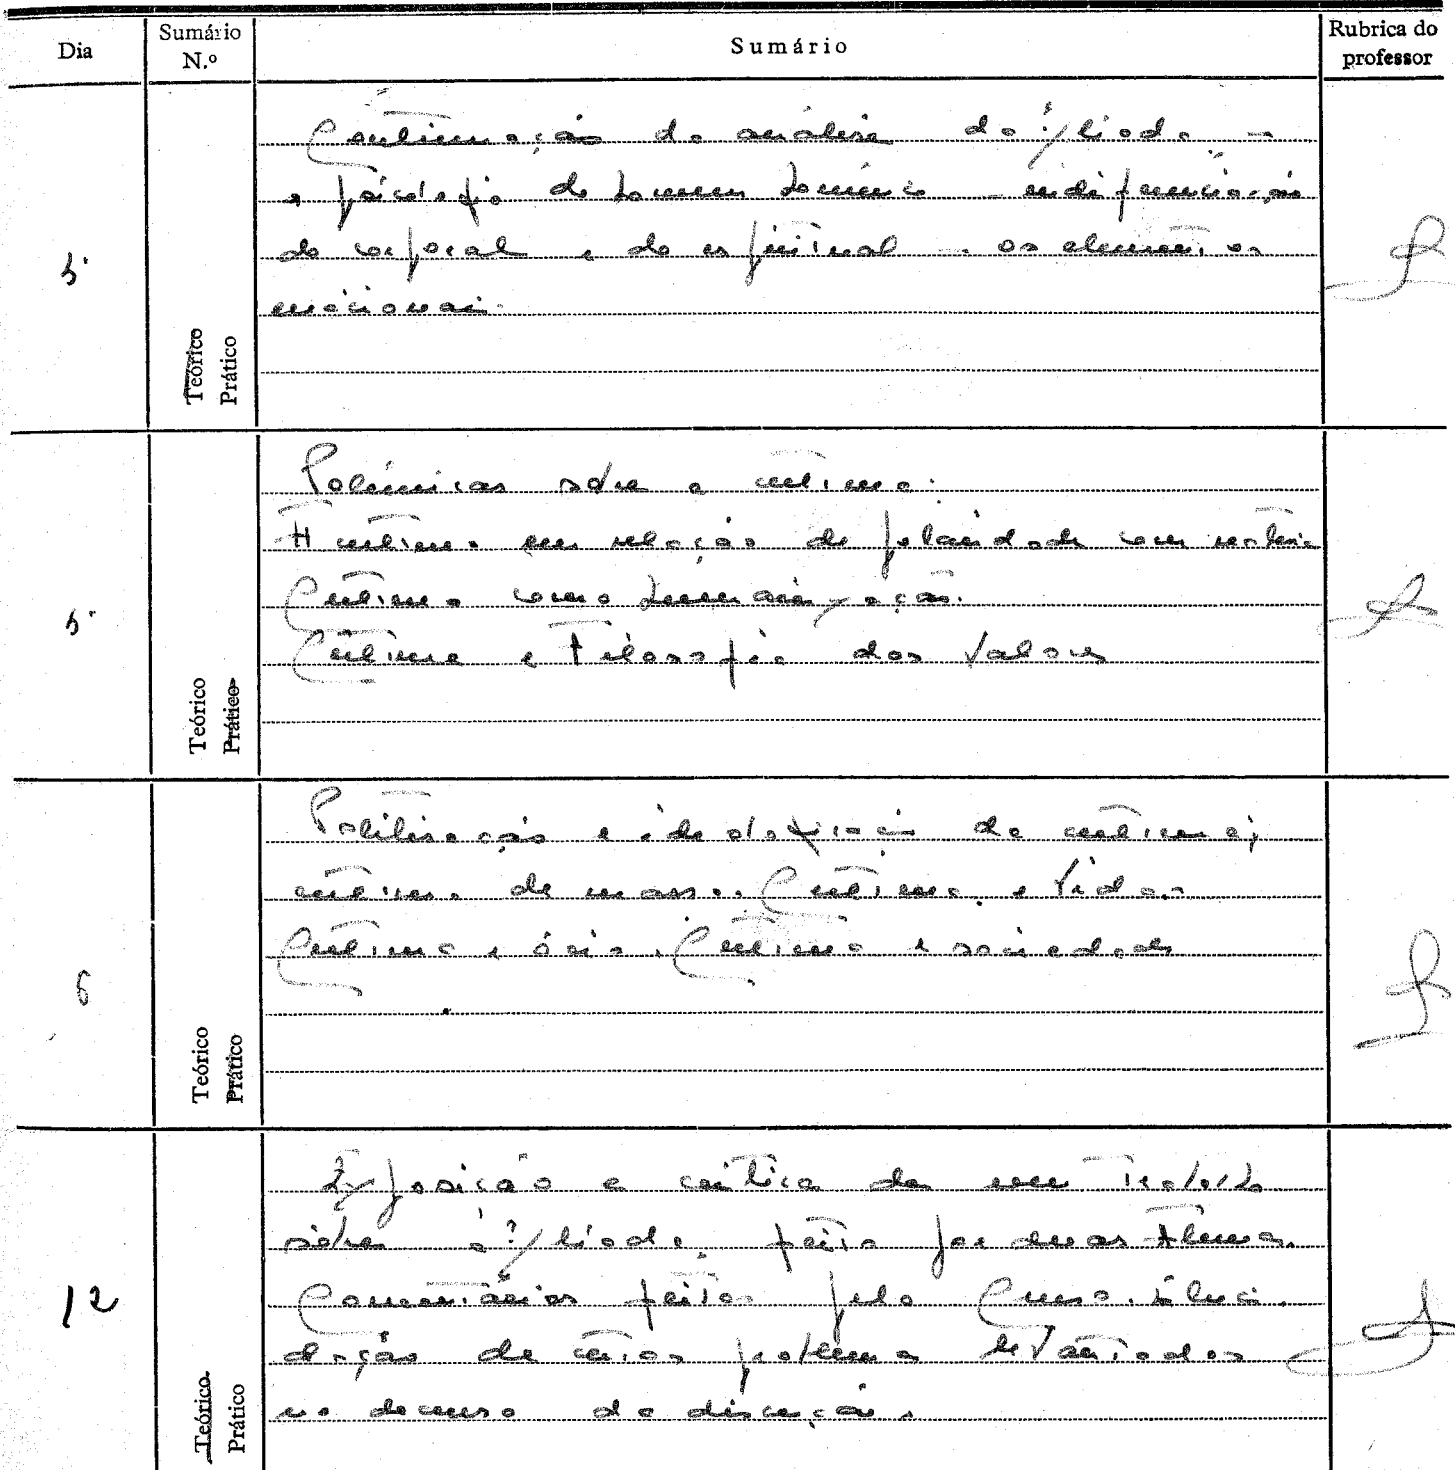 Dia
Sumário N.º
Sumário
Rubrica do professor
5
Teórico
Prático
Continuação da análise da Ilíada –
a psicologia do homem homérico – indiferenciação
do corporal e do espiritual – os elementos
emocionais.
5
Teórico
Prático
Polémicas sobre a cultura.
A cultura em relação de polaridade com natureza
Cultura como humanização.
Cultura e Filosofia dos Valores
6
Teórico
Prático
Politização e ideologização da cultura;
cultura de massa. Cultura e Vida.
Cultura e ócio. Cultura e sociedade
12
Teórico
Prático
Exposição e crítica de um trabalho
sobre a Ilíada, feito por duas Alunas.
Comentários feitos pelo Curso. Eluci-
dação de vários problemas levantados
no decurso da discussão.